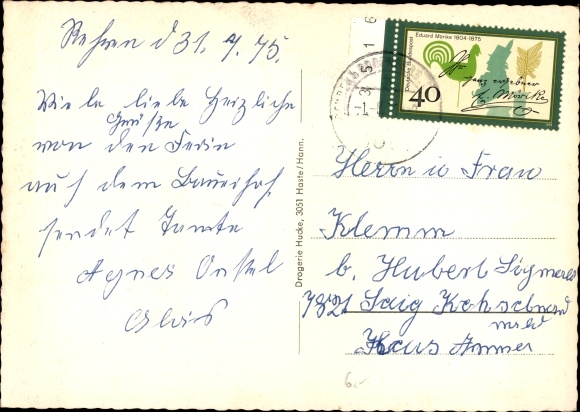 Rehren d 31. 7. 75.
Viele liebe Herzliche
Grüße
von den Ferien
auf dem Bauernhof
sendet Tante
Agnes Onkel
Alois
Drogerie Hucke, 3051 Haste/Hann.
Eduard Mörike 1804-1875
Deutsche Bundespost
ganz ergebener
E. Mörike
40
Herrn u Frau
Klemm
b. Hubert
7821 Saig
Haus
6.-